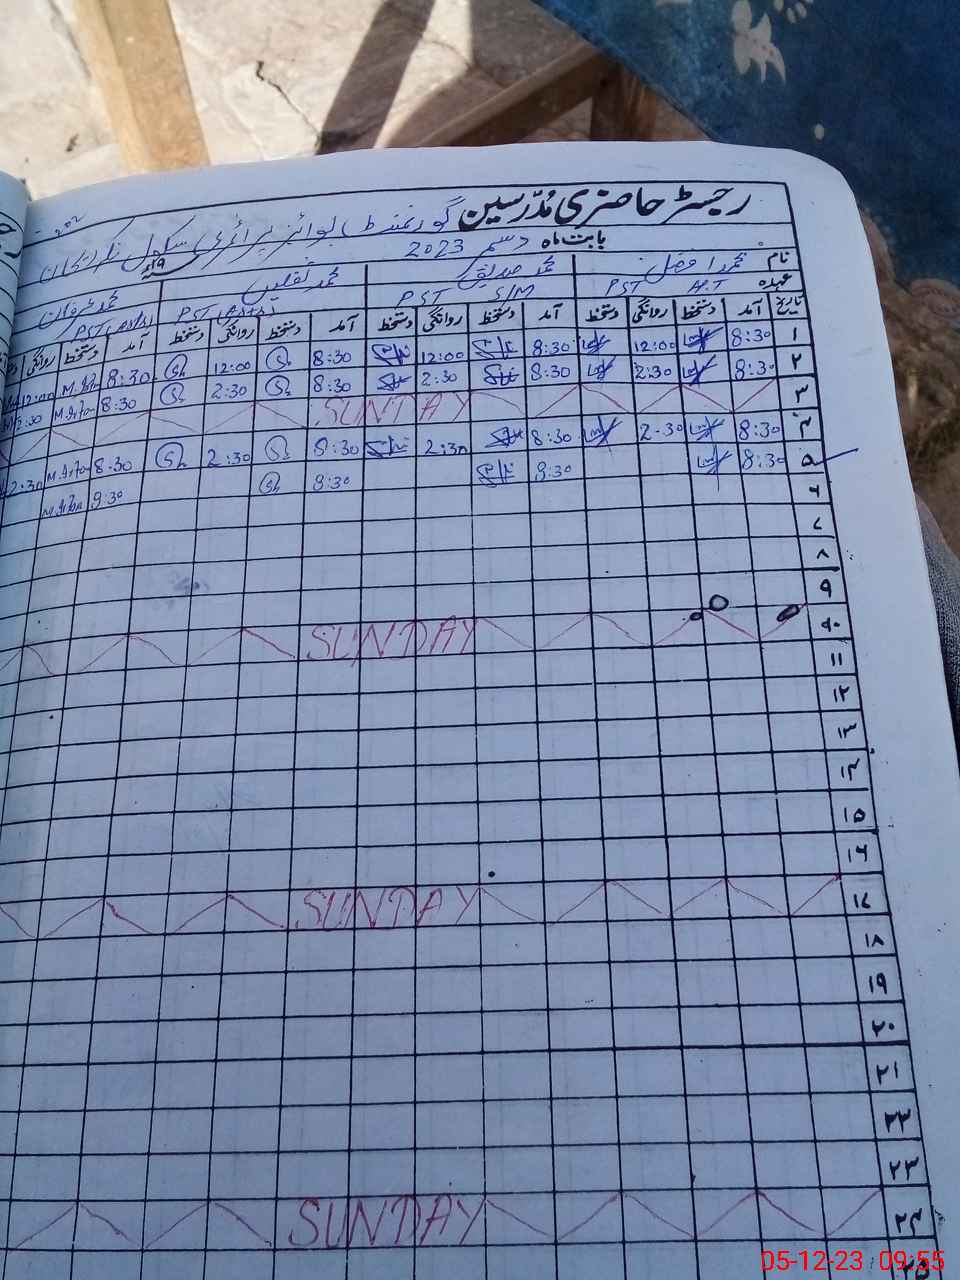 رجسٹر حاضری مُدّرسین گورنمنٹ بوائز پرائمری سکول
بابت ماہ دسمبر 2023
نام محمد افضل محمد صدیق محمد ثقلین محمد عرفان
عہدہ H.T PST S/M PST
تاریخ آمد دستخط روانگی دستخط آمد دستخط روانگی دستخط آمد دستخط روانگی دستخط آمد دستخط روانگی
۱ 8:30 12:00 8:30 12:00 8:30 12:00 8:30 12:00
۲ 8:30 2:30 8:30 2:30 8:30 2:30 8:30 2:30
۳ SUNDAY
۴ 8:30 2:30 8:30 2:30 8:30 2:30 8:30 2:30
۵ 8:30 8:30 8:30 8:30
۶
۷
۸
۹
۱۰ SUNDAY
۱۱
۱۲
۱۳
۱۴
۱۵
۱۶
۱۷ SUNDAY
۱۸
۱۹
۲۰
۲۱
۲۲
۲۳
۲۴ SUNDAY
۲۵
05-12-23 09:55